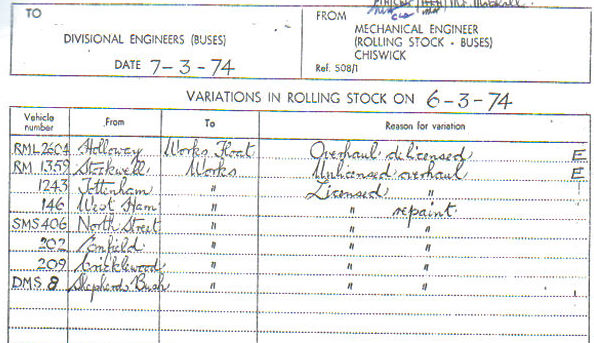 TO
DIVISIONAL ENGINEERS (BUSES)
DATE 7-3-74
FROM
MECHANICAL ENGINEER
(ROLLING STOCK - BUSES)
CHISWICK
Ref. 508/1
VARIATIONS IN ROLLING STOCK ON 6-3-74
Vehicle number From To Reason for variation
RML 2604 Holloway Works Float Overhaul delicensed E
RM 1359 Stockwell Works Unlicensed overhaul E
1243 Tottenham " Licensed "
146 West Ham " " repaint.
SMS 406 North Street " " "
202 Enfield " " "
209 Cricklewood " " "
DMS 8 Shepherds Bush " " "